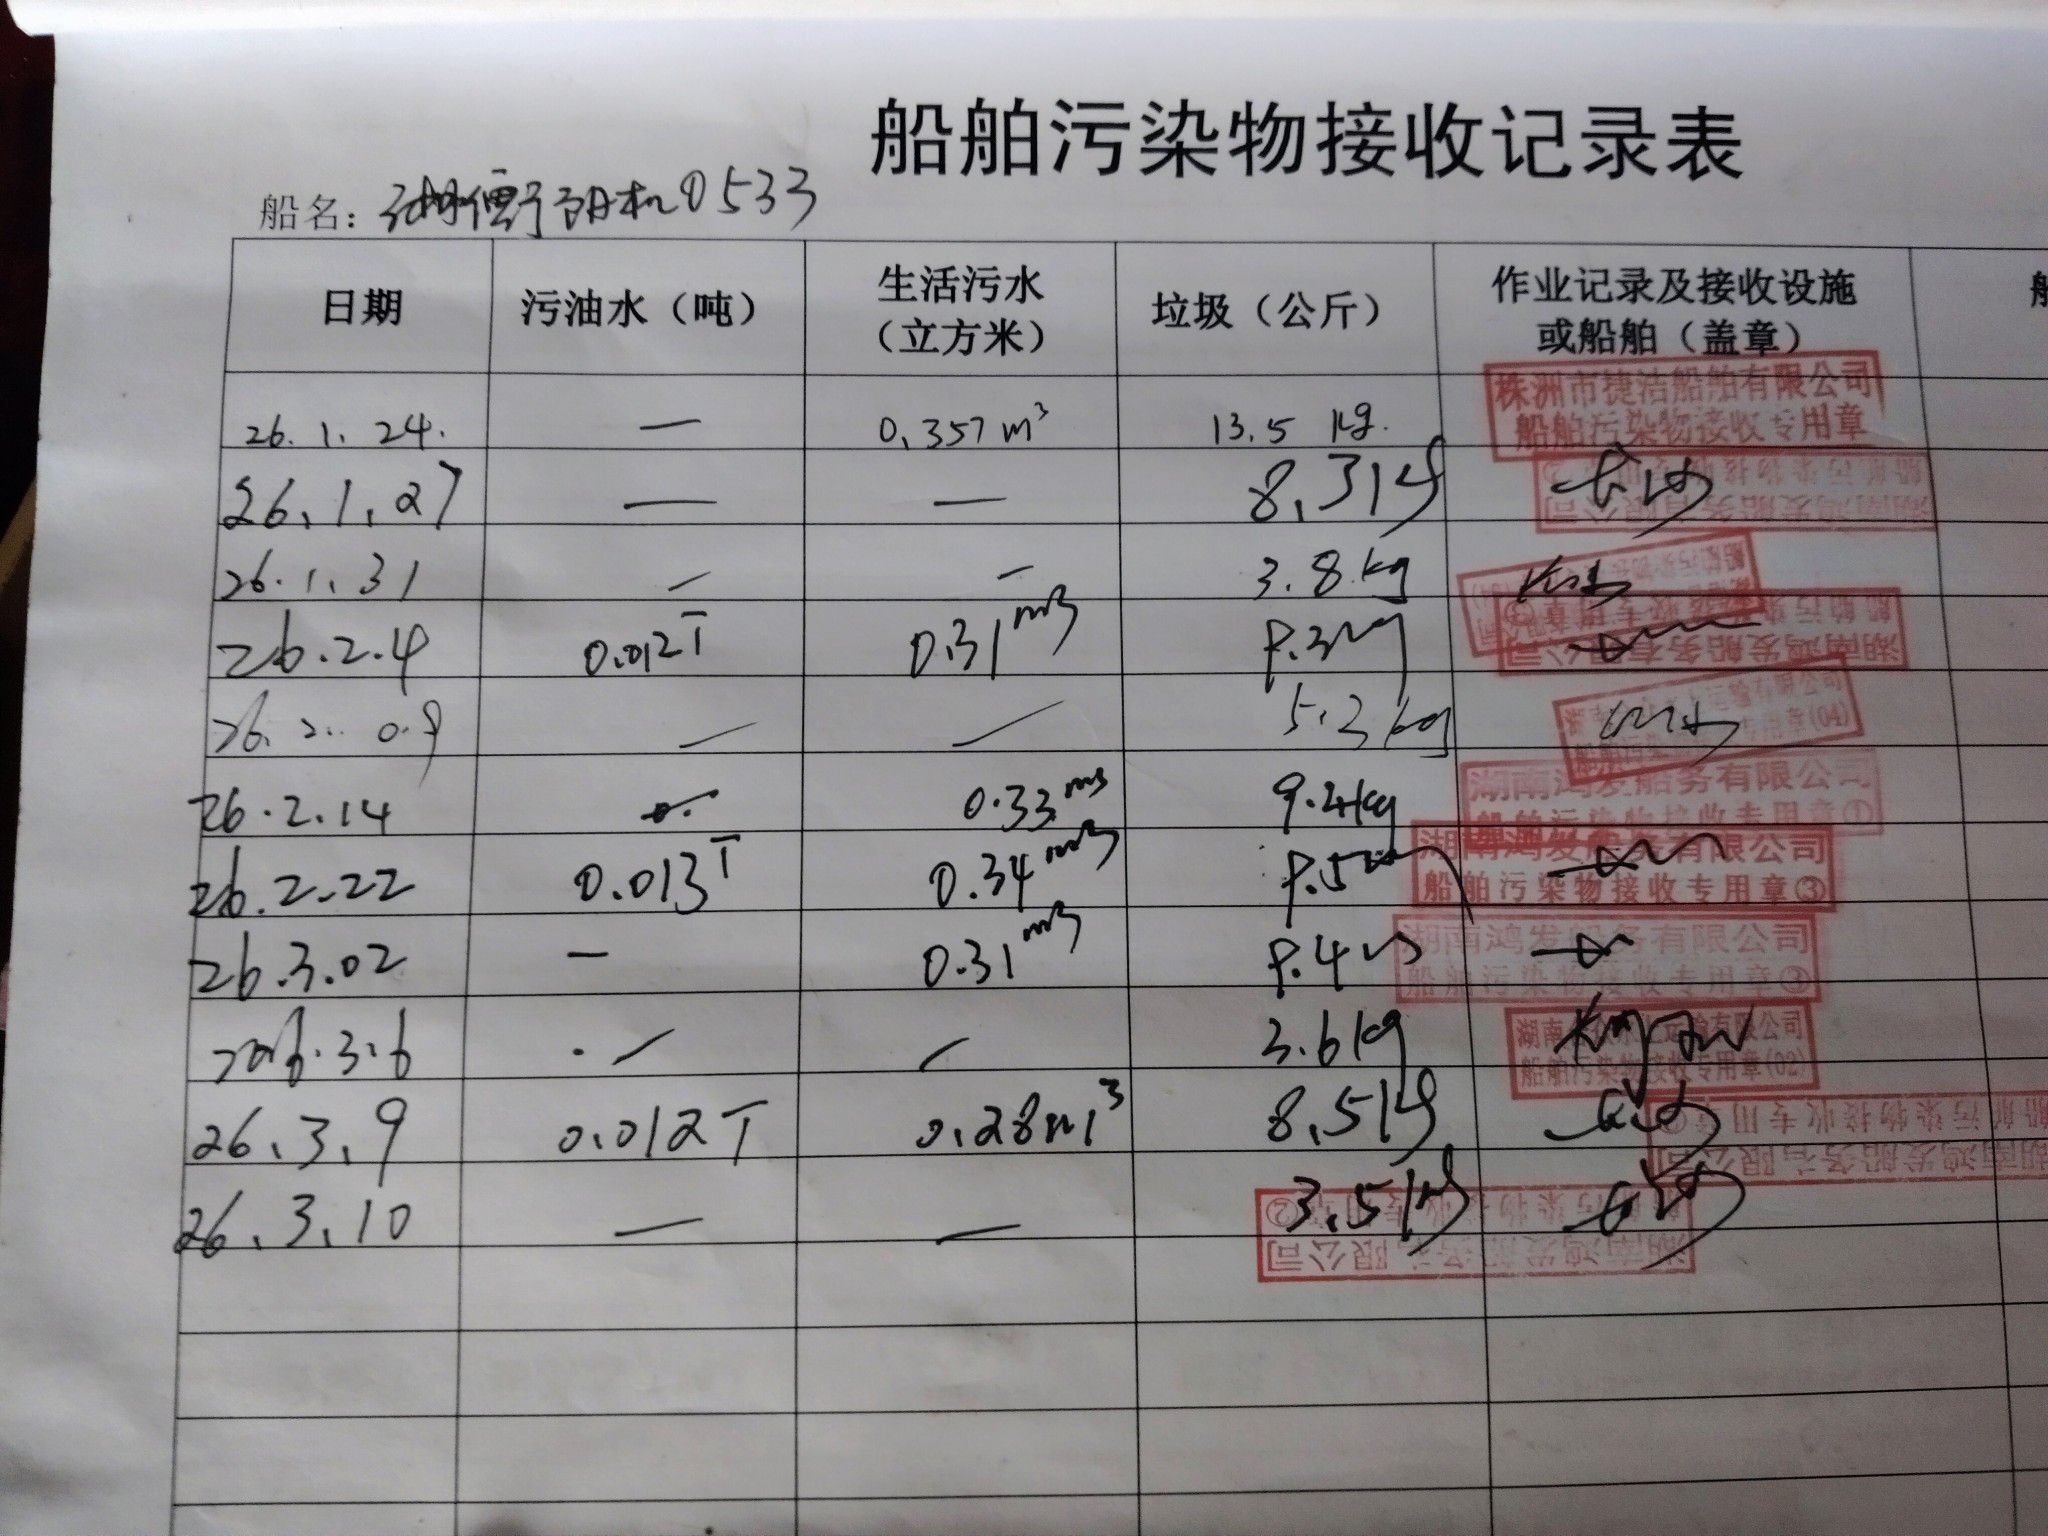 船舶污染物接收记录表
船名：湖衡阳机0533
日期 污油水（吨） 生活污水（立方米） 垃圾（公斤） 作业记录及接收设施或船舶（盖章）
26.1.24. — 0.357m³ 13.5 kg. 株洲市捷洁船舶有限公司 船舶污染物接收专用章
26.1.27 — — 8.3kg 长沙 湖南鸿发船务有限公司 船舶污染物接收专用章②
26.1.31 — — 3.8kg 长沙
26.2.4 0.012T 0.31m3 湖南鸿发船务有限公司 船舶污染物接收专用章
26.2.09 — — 5.2kg 长沙 运输有限公司 专用章(04)
26.2.14 0.33m3 9.4kg 湖南鸿发船务有限公司 船舶污染物接收专用章①
26.2.22 0.013T 0.34m3 湖南鸿发船务有限公司 船舶污染物接收专用章③
26.3.02 — 0.31m3 湖南鸿发船务有限公司 船舶污染物接收专用章③
2026.3.6 — — 3.6kg 湖南 运输有限公司 船舶污染物接收专用章(02)
26.3.9 0.012T 0.28m³ 8.5kg 长沙 湖南鸿发船务有限公司 船舶污染物接收专用章
26.3.10 — — 3.5kg 长沙 湖南鸿发船务有限公司 船舶污染物接收专用章②